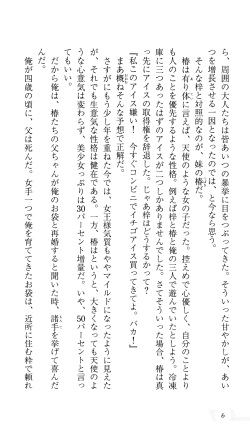 ら、周囲の大人たちは皆あいつの暴挙に目をつぶってきた。そういった甘やかしが、あい
つを増長させる一因となったのでは、と今なら思う。
そんな梓と対照的なのが、妹の椿だ。
椿は有り体に言えば、天使のような女の子だった。控えめで心優しく、自分のことより
も人のことを優先するような性格。例えば梓と椿と俺の三人で遊んでいたとしよう。冷凍
庫に三つあったはずのアイスが二つしかありませんでした。さてそういった場合、椿は真
っ先にアイスの取得権を辞退した。じゃあ梓はどうするかって？
『私、このアイス嫌い！　今すぐコンビニでイチゴアイス買ってきてよ。バカ！』
まあ概ねそんな予想で正解だ。
さすがにもう少し年を重ねた今では、女王様気質もややマイルドになったように見えた
が、それでも生意気な性格は健在である。一方、椿はというと、大きくなっても天使のよ
うな心意気は変わらず、美少女っぷりは30パーセント増量だ。いや、50パーセントと言っ
てもいい。
だから俺は、椿たちの父ちゃんが俺のお袋と再婚すると聞いた時、諸手を挙げて喜んだ
んだ。
俺が四歳の頃に、父は死んだ。女手一つで俺を育ててきたお袋は、近所に住む梓で頼れ
6